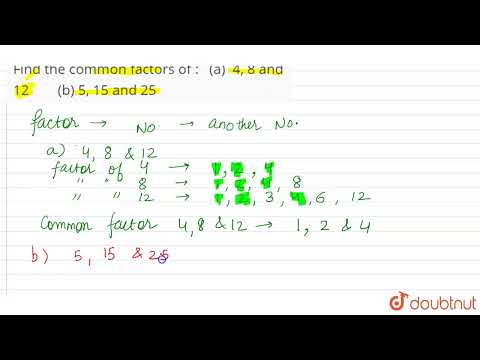 Find the common factors of : (a) 4, 8 and
12 (b) 5, 15 and 25
factor → No → another No.
a) 4, 8 & 12
factor of 4 → 1, 2, 4
" " 8 → 1, 2, 4, 8
" " 12 → 1, 2, 3, 4, 6, 12
Common factor 4, 8 & 12 → 1, 2 & 4
b) 5, 15 & 25
doubtnut